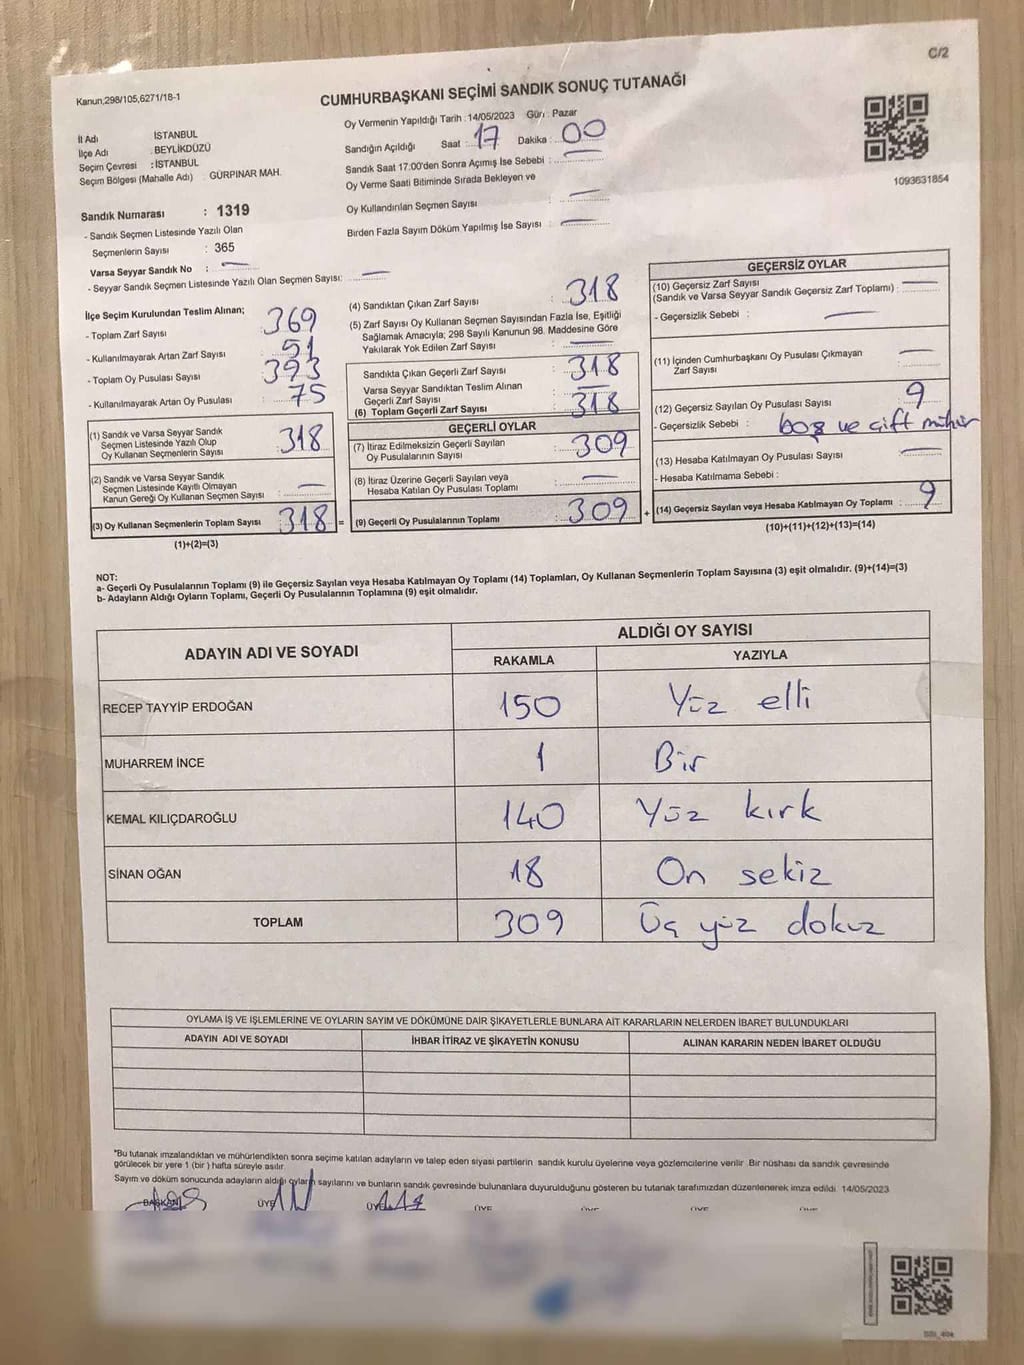 C/2
Kanun,298/105,6271/18-1
CUMHURBAŞKANI SEÇİMİ SANDIK SONUÇ TUTANAĞI
1093631854
İl Adı İSTANBUL
İlçe Adı : BEYLİKDÜZÜ
Seçim Çevresi : İSTANBUL
Seçim Bölgesi (Mahalle Adı) : GÜRPINAR MAH.
Sandık Numarası : 1319
- Sandık Seçmen Listesinde Yazılı Olan
Seçmenlerin Sayısı : 365
Varsa Seyyar Sandık No : —
- Seyyar Sandık Seçmen Listesinde Yazılı Olan Seçmen Sayısı: —
Oy Vermenin Yapıldığı Tarih : 14/05/2023 Gün : Pazar
Sandığın Açıldığı Saat : 17 Dakika : 00
Sandık Saat 17:00'den Sonra Açımış İse Sebebi : —
Oy Verme Saati Bitiminde Sırada Bekleyen ve
Oy Kullandırılan Seçmen Sayısı : —
Birden Fazla Sayım Döküm Yapılmış İse Sayısı : —
İlçe Seçim Kurulundan Teslim Alınan;
- Toplam Zarf Sayısı : 369
- Kullanılmayarak Artan Zarf Sayısı : 51
- Toplam Oy Pusulası Sayısı : 393
- Kullanılmayarak Artan Oy Pusulası : 75
(1) Sandık ve Varsa Seyyar Sandık
Seçmen Listesinde Yazılı Olup
Oy Kullanan Seçmenlerin Sayısı : 318
(2) Sandık ve Varsa Seyyar Sandık
Seçmen Listesinde Kayıtlı Olmayan
Kanun Gereği Oy Kullanan Seçmen Sayısı : —
(3) Oy Kullanan Seçmenlerin Toplam Sayısı : 318 =
(1)+(2)=(3)
(4) Sandıktan Çıkan Zarf Sayısı : 318
(5) Zarf Sayısı Oy Kullanan Seçmen Sayısından Fazla İse, Eşitliği
Sağlamak Amacıyla; 298 Sayılı Kanunun 98. Maddesine Göre
Yakılarak Yok Edilen Zarf Sayısı : —
Sandıkta Çıkan Geçerli Zarf Sayısı : 318
Varsa Seyyar Sandıktan Teslim Alınan
Geçerli Zarf Sayısı : —
(6) Toplam Geçerli Zarf Sayısı : 318
GEÇERLİ OYLAR
(7) İtiraz Edilmeksizin Geçerli Sayılan
Oy Pusulalarının Sayısı : 309
(8) İtiraz Üzerine Geçerli Sayılan veya
Hesaba Katılan Oy Pusulası Toplamı : —
(9) Geçerli Oy Pusulalarının Toplamı : 309 +
GEÇERSİZ OYLAR
(10) Geçersiz Zarf Sayısı
(Sandık ve Varsa Seyyar Sandık Geçersiz Zarf Toplamı) : —
- Geçersizlik Sebebi : —
(11) İçinden Cumhurbaşkanı Oy Pusulası Çıkmayan
Zarf Sayısı : —
(12) Geçersiz Sayılan Oy Pusulası Sayısı : 9
- Geçersizlik Sebebi : boş ve çift mühür
(13) Hesaba Katılmayan Oy Pusulası Sayısı : —
- Hesaba Katılmama Sebebi :
(14) Geçersiz Sayılan veya Hesaba Katılmayan Oy Toplamı : 9
(10)+(11)+(12)+(13)=(14)
NOT:
a- Geçerli Oy Pusulalarının Toplamı (9) ile Geçersiz Sayılan veya Hesaba Katılmayan Oy Toplamı (14) Toplamları, Oy Kullanan Seçmenlerin Toplam Sayısına (3) eşit olmalıdır. (9)+(14)=(3)
b- Adayların Aldığı Oyların Toplamı, Geçerli Oy Pusulalarının Toplamına (9) eşit olmalıdır.
ADAYIN ADI VE SOYADI ALDIĞI OY SAYISI
RAKAMLA YAZIYLA
RECEP TAYYİP ERDOĞAN 150 Yüz elli
MUHARREM İNCE 1 Bir
KEMAL KILIÇDAROĞLU 140 Yüz kırk
SİNAN OĞAN 18 On sekiz
TOPLAM 309 Üç yüz dokuz
OYLAMA İŞ VE İŞLEMLERİNE VE OYLARIN SAYIM VE DÖKÜMÜNE DAİR ŞİKAYETLERLE BUNLARA AİT KARARLARIN NELERDEN İBARET BULUNDUKLARI
ADAYIN ADI VE SOYADI İHBAR İTİRAZ VE ŞİKAYETİN KONUSU ALINAN KARARIN NEDEN İBARET OLDUĞU
*Bu tutanak imzalandıktan ve mühürlendikten sonra seçime katılan adayların ve talep eden siyasi partilerin sandık kurulu üyelerine veya gözlemcilerine verilir. Bir nüshası da sandık çevresinde
görülecek bir yere 1 (bir ) hafta süreyle asılır.
Sayım ve döküm sonucunda adayların aldığı oyların sayılarını ve bunların sandık çevresinde bulunanlara duyurulduğunu gösteren bu tutanak tarafımızdan düzenlenerek imza edildi. 14/05/2023
BAŞKAN ÜYE ÜYE ÜYE ÜYE ÜYE